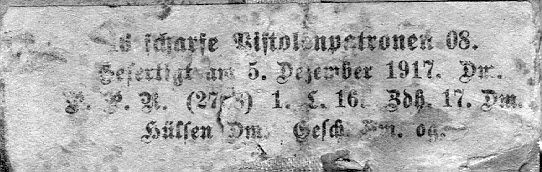 16 scharfe Pistolenpatronen 08.
Gefertigt am 5. Dezember 1917. Dm.
P. P. A. 1. L. 16. Zdh. 17. Dm.
Hülsen Dm. Gesch. Dm. og.